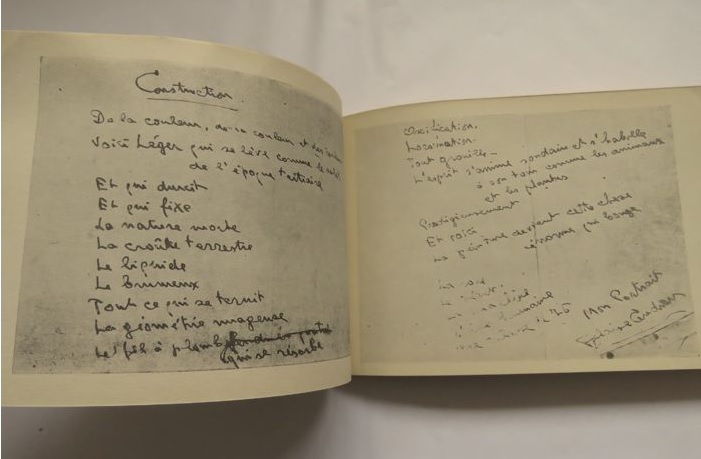 Construction.
De la couleur, de la couleur et des
Voici Léger qui se lève comme le soleil
de l'époque tertiaire
Et qui durcit
Et qui fixe
La nature morte
La croûte terrestre
Le liquide
Le brumeux
Tout ce qui se ternit
La géométrie nuageuse
Le fil à plomb
qui se résorbe
Ossification.
Locomotion.
Tout grouille
L'esprit s'anime soudain et s'habille
à son tour comme les animaux
et les plantes
Prodigieusement
Et voici
La peinture devient cette chose
énorme qui bouge
La roue
La vie
La machine
L'âme humaine
une culasse de 75
Mon Portrait
Blaise Cendrars